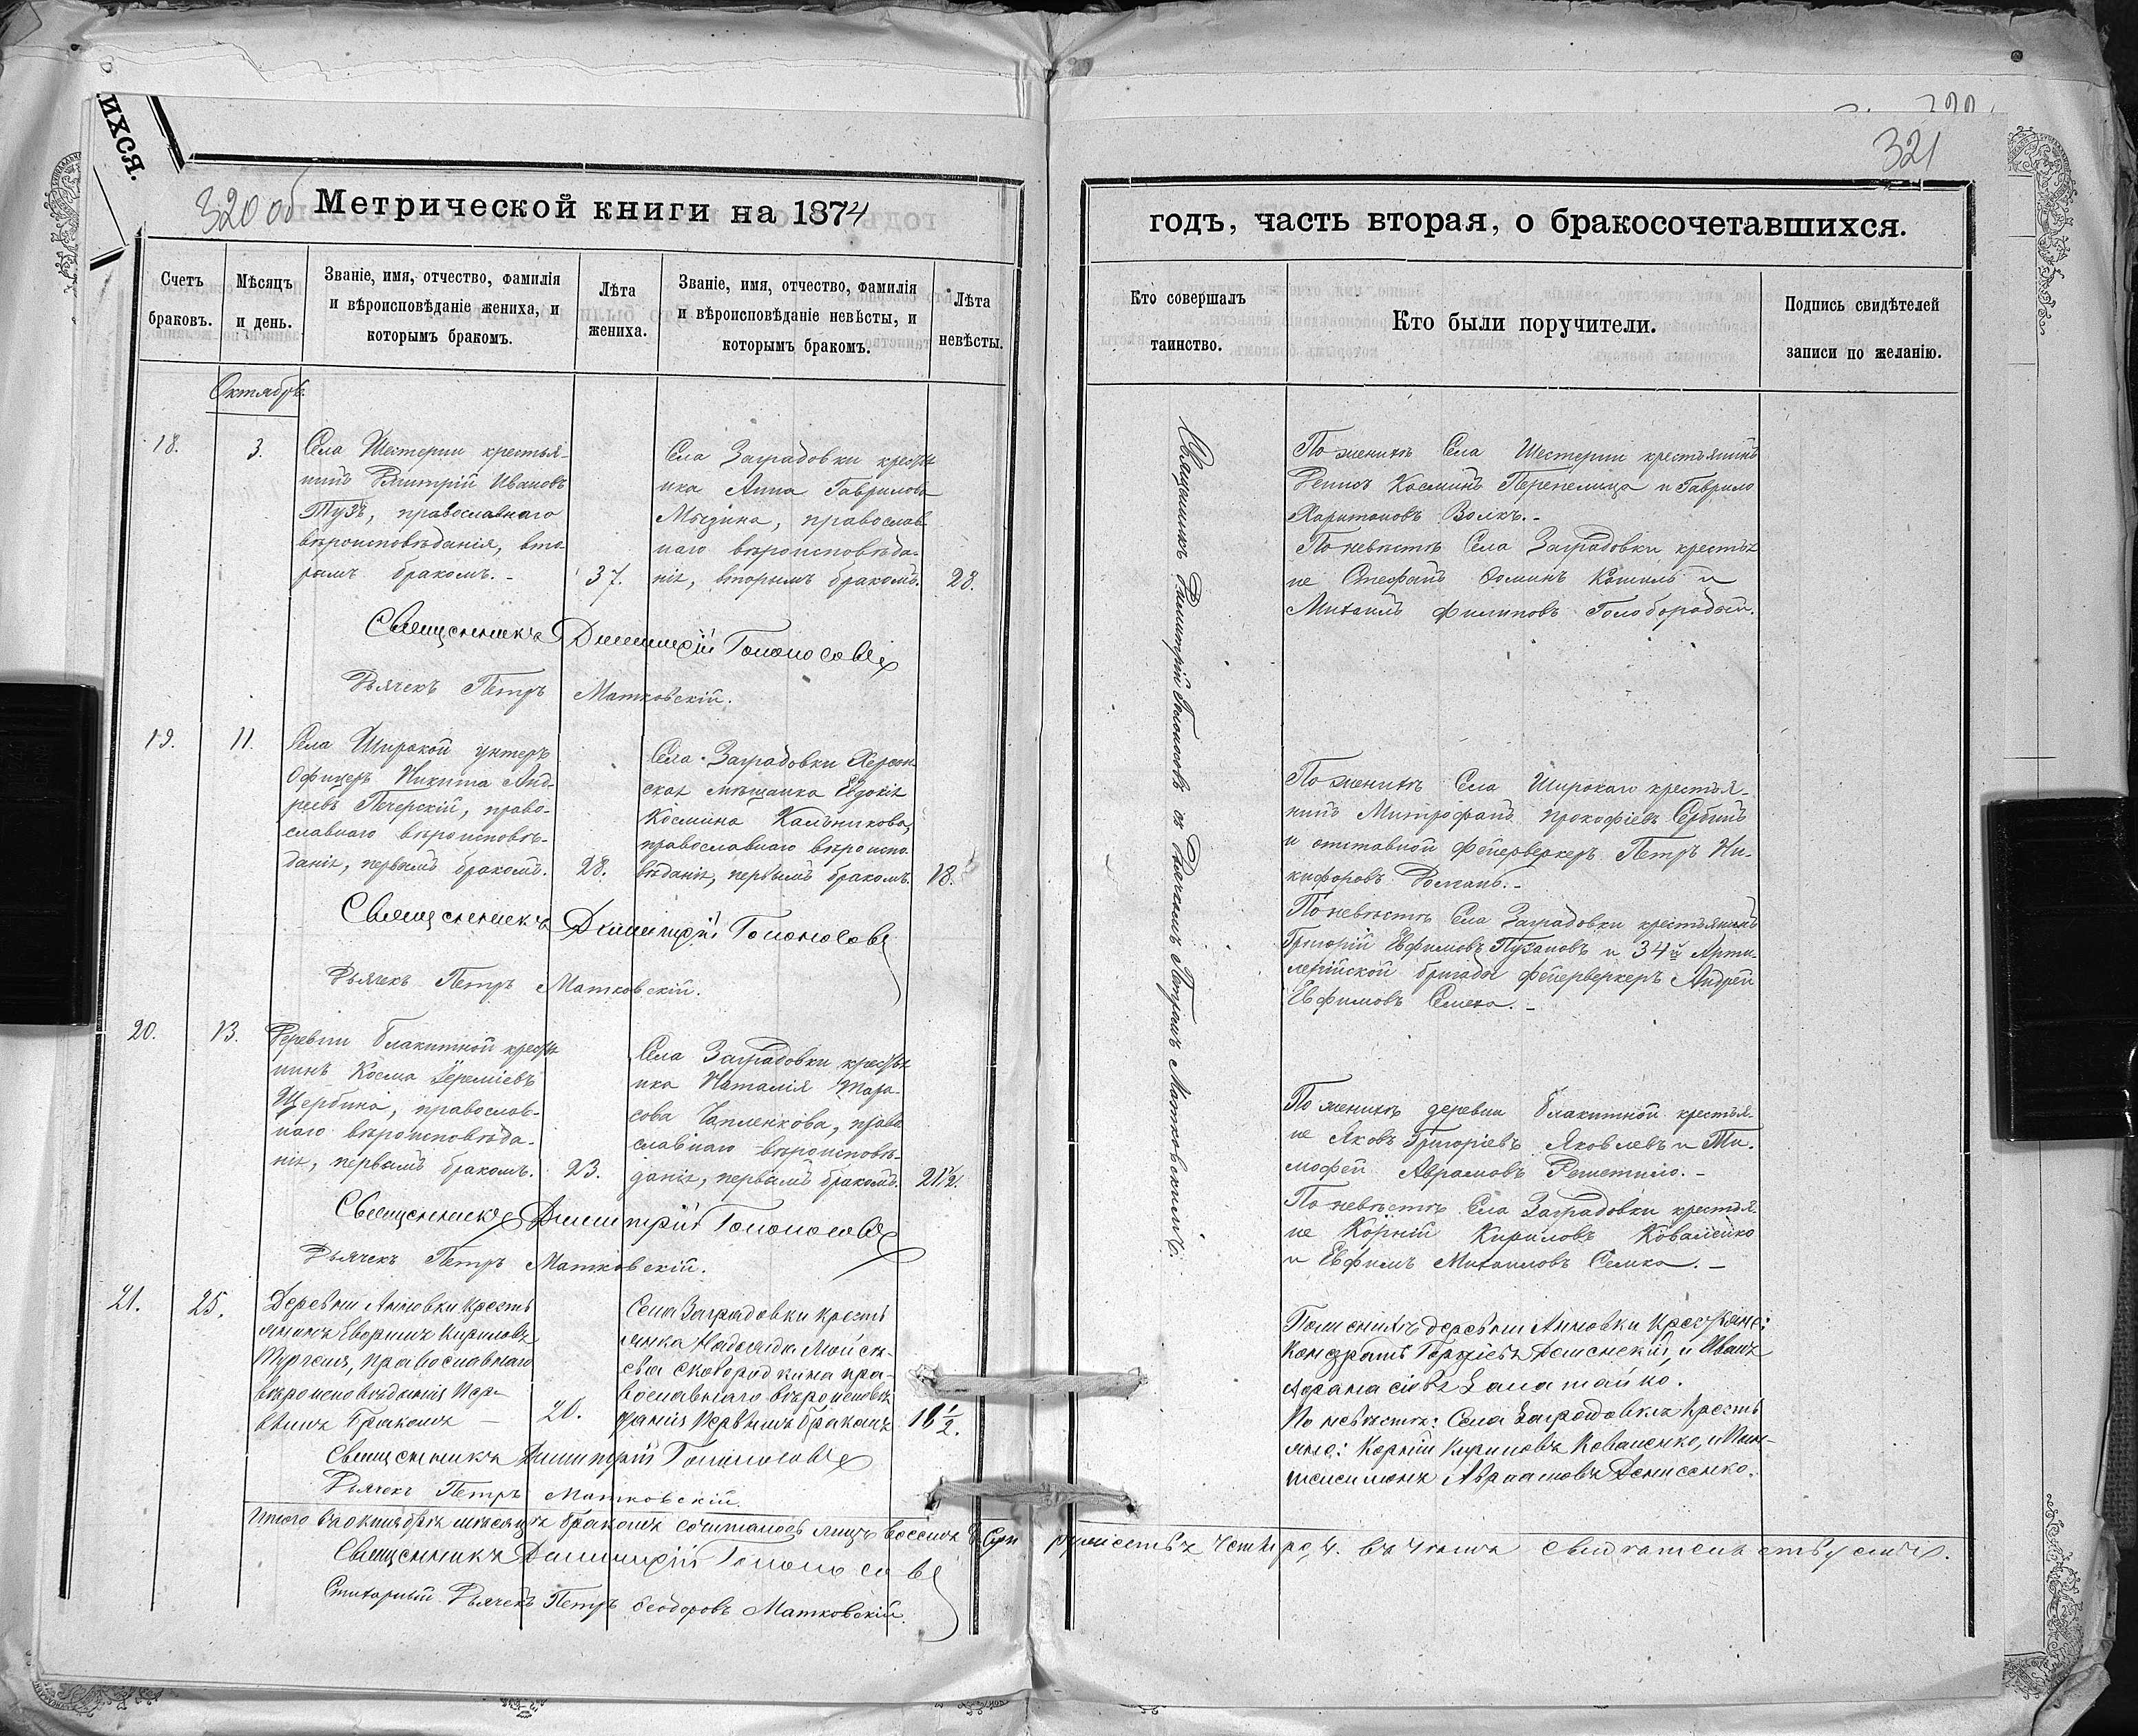 ихся.
320 об
Метрической книги на 1874
Счетъ
браковъ.
Мѣсяцъ
и день.
Званіе, имя, отчество, фамилія
и вѣроисповѣданіе жениха, и
которымъ бракомъ.
Лѣта
жениха.
Званіе, имя, отчество, фамилія
и вѣроисповѣданіе невѣсты, и
которымъ бракомъ.
Лѣта
невѣсты.
Октябрь.
18.
3.
Села Шестерни крестья-
нинъ Дмитрій Ивановъ
Тузъ, православнаго
вѣроисповѣданія, вто-
рымъ бракомъ. -
37.
Села Заградовки крестья
нка Анна Гаврилова
православ
наго вѣроисповѣда-
нія, вторымъ бракомъ.
28.
Священникъ Димитрій Гононосовъ
Дьячекъ Петръ Матковскій.
19.
11.
Села Широкой унтеръ
Офицеръ Никита Анд-
реевъ Печерскій, право-
славнаго вѣроисповѣ-
данія, первымъ бракомъ.
28.
Села Заградовки Херсон
ская мѣщанка Евдокія
Космина Калѣникова,
православнаго вѣроиспо
вѣданія, первымъ бракомъ.
18.
Священникъ Димитрій Гононосовъ
Дьячекъ Петръ Матковскій.
20.
13.
Деревни Блакитной крестья
нинъ Косма Іереміевъ
Щербина, православ-
наго вѣроисповѣда-
нія, первымъ бракомъ.
23.
Села Заградовки крестья
нка Наталія Тара-
сова Чапленкова, право
славнаго вѣроисповѣ-
данія, первымъ бракомъ.
21 1/2.
Священникъ Димитрій Гононосовъ
Дьячекъ Петръ Матковскій.
21.
25.
Деревни Анновки кресть
янинъ Кириловъ
православнаго
вѣроисповѣданія пер-
вымъ бракомъ —
20.
Села Заградовки кресть
янка Надежда Мойсе-
ева Сковородкина пра-
вославнаго вѣроисповѣ
данія первымъ бракомъ
16 1/2.
Священникъ Димитрій Гононосовъ
Дьячекъ Петръ Матковскій.
Итого въ октябрѣ мѣсяцѣ бракомъ сочиталось лицъ восемь 8.
Священникъ Димитрій Гононосовъ
Стихарный Дьячекъ Петръ Ѳеодоровъ Матковскій.
321
годъ, часть вторая, о бракосочетавшихся.
Кто совершалъ
таинство.
Кто были поручители.
Подпись свидѣтелей
записи по желанію.
Священникъ Димитрій Гононосовъ съ Дьячкомъ Петромъ Матковскимъ.
По женихѣ Села Шестерни крестьянинъ
Денисъ Косминъ Перепелица и Гаврило
Харитоновъ Волкъ. -
По невѣстѣ Села Заградовки крестья
не Стефанъ Ѳоминъ и
Михаилъ Филиповъ Голобородый.
По женихѣ Села Широкаго крестья-
нинъ Митрофанъ Прокофіевъ Сербинъ
и отставной Фейерверкеръ Петръ Ни-
кифоровъ -
По невѣстѣ Села Заградовки крестьянинъ
Григорій Евфимовъ Пузановъ и 34й Арти-
лерійской бригады фейерверкеръ Андрей
Евфимовъ Семка. -
По женихѣ деревни Блакитной крестья-
не Яковъ Григоріевъ Яковлевъ и Ти-
мофей Аврамовъ Решетило. -
По невѣстѣ Села Заградовки крестья
не Корній Кириловъ Коваленко
и Евфимъ Михаиловъ Семка. -
По женихѣ деревни Анновки крестьяне:
Кондратъ и Иванъ
Афанасіевъ
По невѣстѣ: Села Заградовки кресть
яне: Корній Кириловъ Коваленко, и
Авраамовъ Денисенко.
четыре, 4. въ чемъ свидѣтельствуемъ.